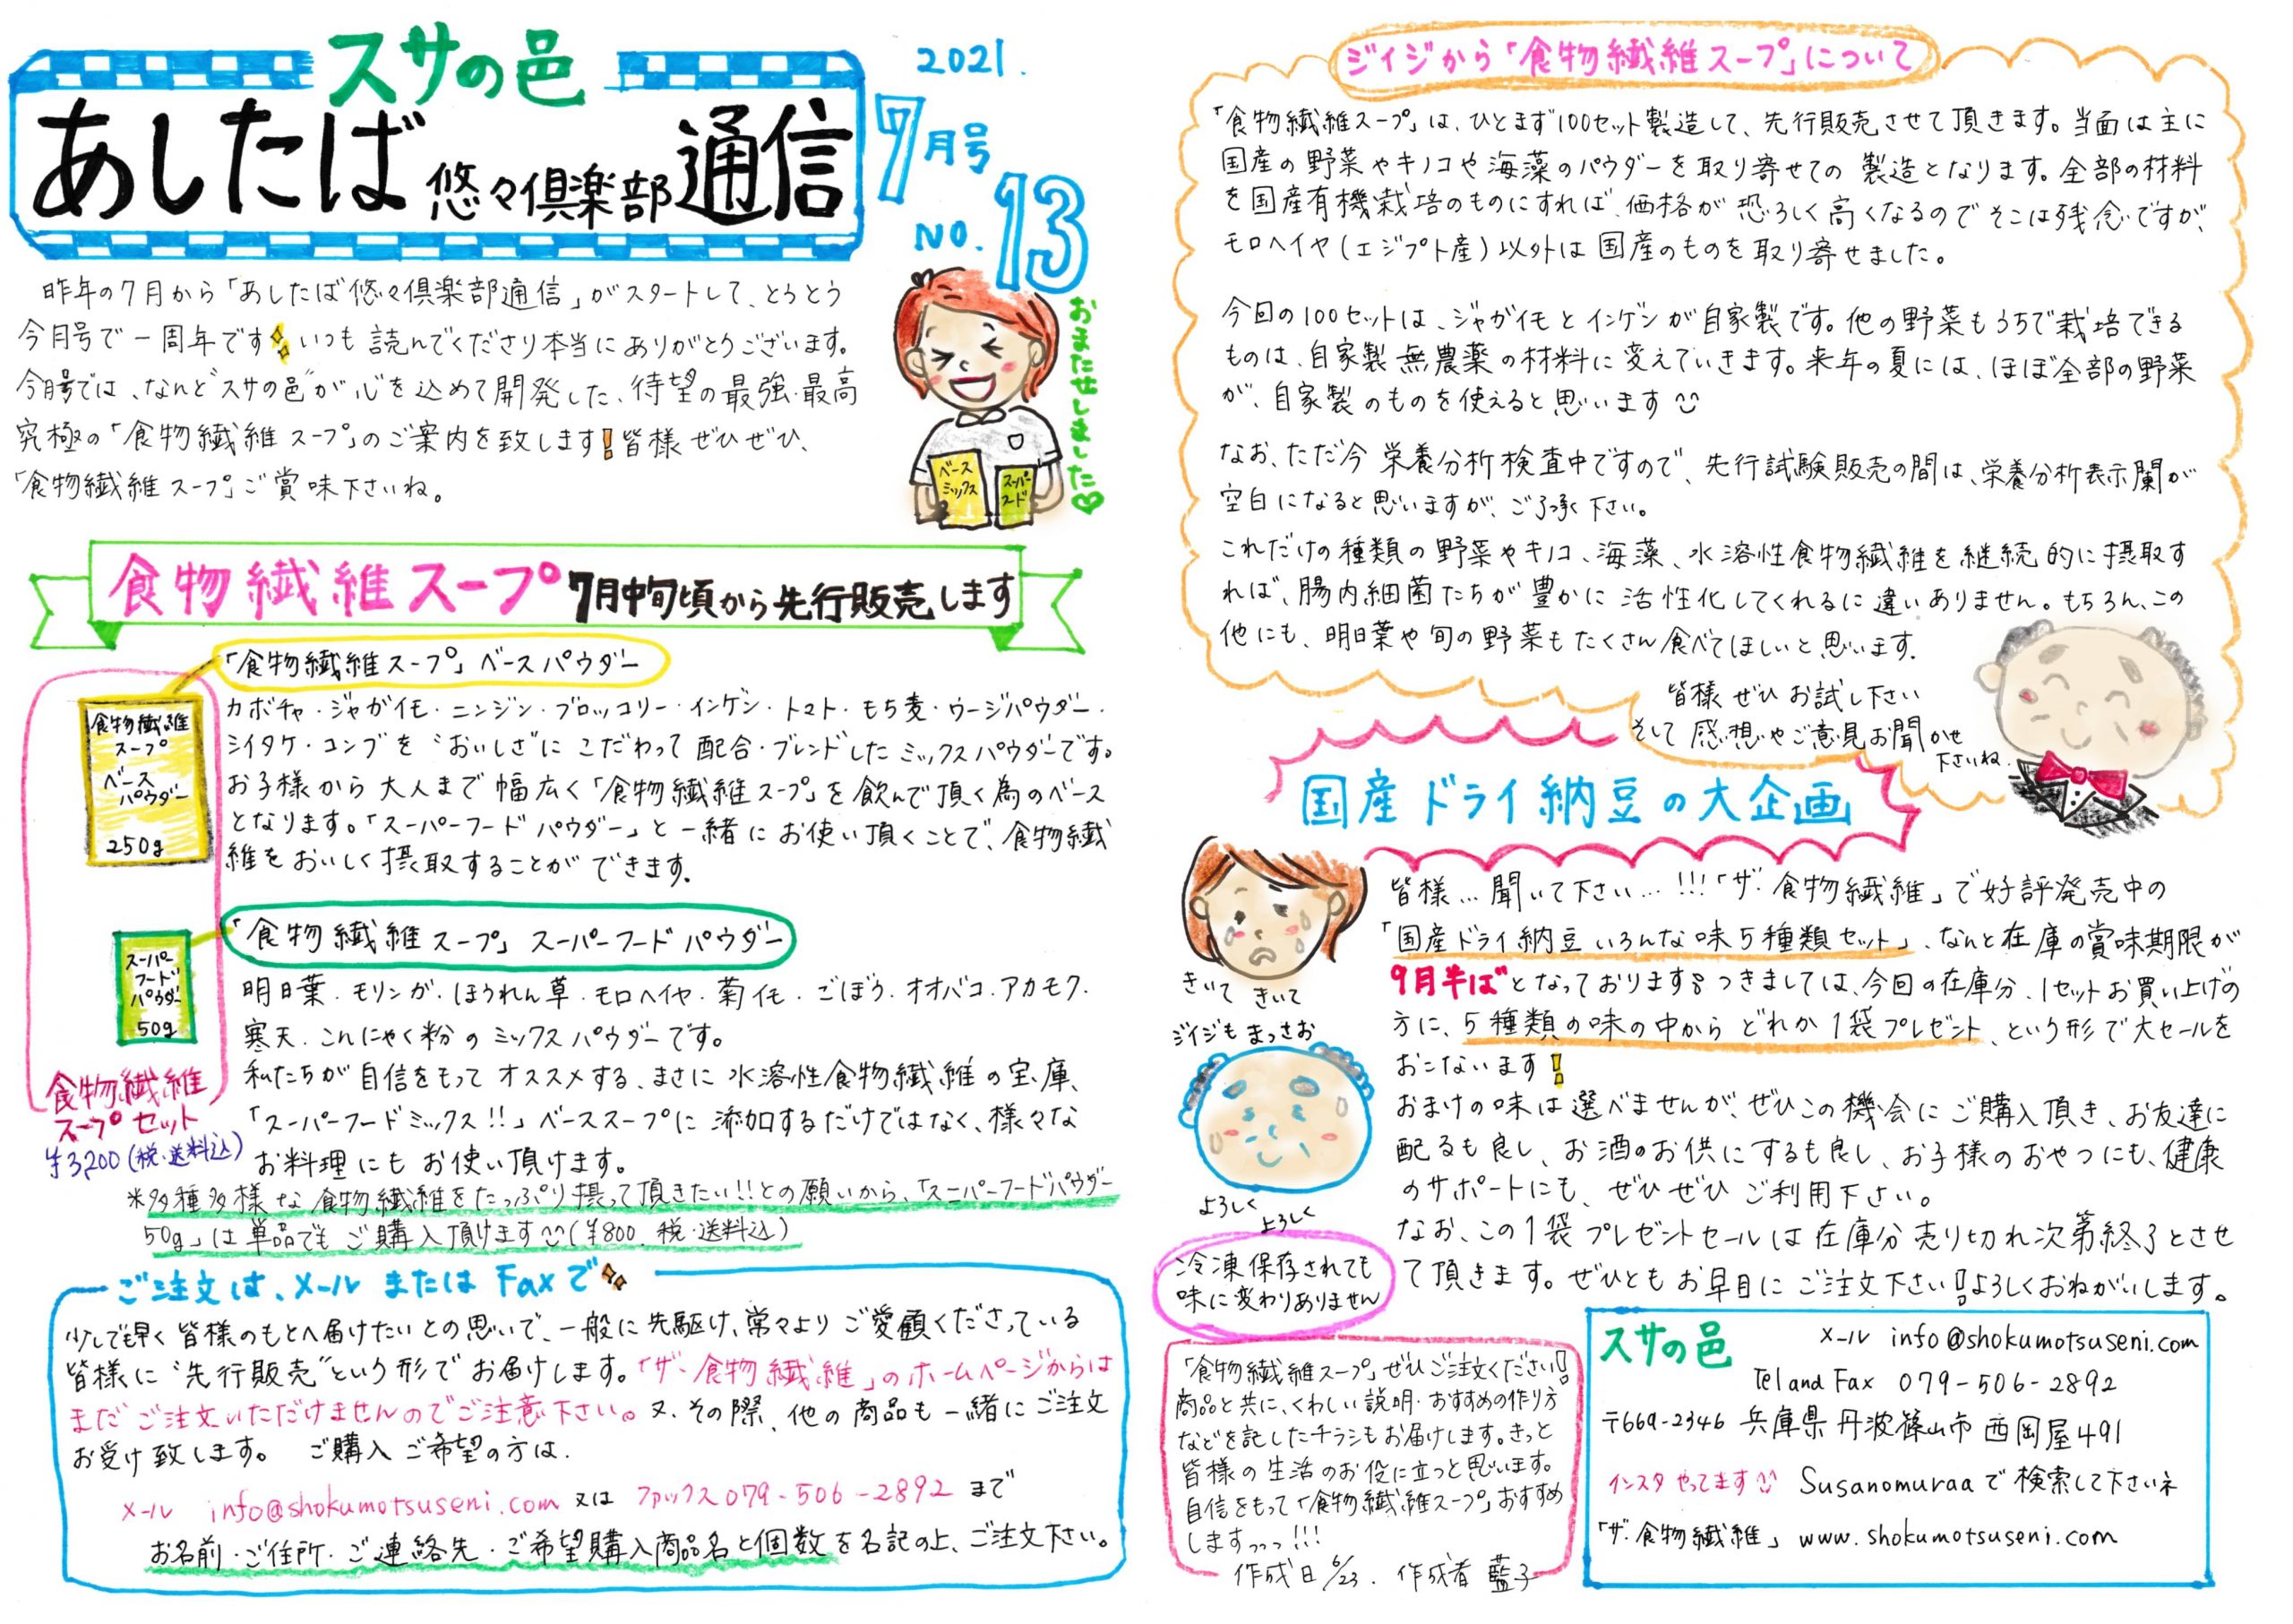 スサの邑
あしたば悠々倶楽部通信
2021.
7月号
NO.13
おまたせしました
ベース
ミックス
スーパー
フード
昨年の7月から「あしたば悠々倶楽部通信」がスタートして、とうとう
今月号で一周年です いつも読んでくださり本当にありがとうございます。
今月号では、なんと"スサの邑"が心を込めて開発した、待望の最強・最高
究極の「食物繊維スープ」のご案内を致します!皆様ぜひぜひ、
「食物繊維スープ」ご賞味下さいね。
食物繊維スープ7月中旬頃から先行販売します
「食物繊維スープ」ベースパウダー
食物繊維
スープ
ベース
パウダー
250g
カボチャ・ジャガイモ・ニンジン・ブロッコリー・インゲン・トマト・もち麦・ウージパウダー・
シイタケ・コンブを"おいしさ"にこだわって配合・ブレンドしたミックスパウダーです。
お子様から大人まで幅広く「食物繊維スープ」を飲んで頂く為のベース
となります。「スーパーフードパウダー」と一緒にお使い頂くことで、食物繊
維をおいしく摂取することができます。
「食物繊維スープ」スーパーフードパウダー
スーパー
フード
パウダー
50g
明日葉・モリンガ・ほうれん草・モロヘイヤ・菊イモ・ごぼう・オオバコ・アカモク・
寒天・こんにゃく粉のミックスパウダーです。
私たちが自信をもってオススメする、まさに水溶性食物繊維の宝庫、
「スーパーフードミックス!!」ベーススープに添加するだけではなく、様々な
お料理にもお使い頂けます。
食物繊維
スープセット
¥3,200(税・送料込)
※多種多様な食物繊維をたっぷり摂って頂きたい!!との願いから、「スーパーフードパウダー
50g」は単品でもご購入頂けます(¥800.税・送料込)
ご注文は、メールまたはFaxで
少しでも早く皆様のもとへ届けたいとの思いで、一般に先駆け、常々よりご愛顧くださっている
皆様に"先行販売"という形でお届けします。「ザ・食物繊維」のホームページからは
まだご注文いただけませんのでご注意下さい。又、その際、他の商品も一緒にご注文
お受け致します。 ご購入ご希望の方は、
メール info@shokumotsuseni.com 又は ファックス079-506-2892 まで
お名前・ご住所・ご連絡先・ご希望購入商品名と個数を名記の上、ご注文下さい。
ジイジから「食物繊維スープ」について
「食物繊維スープ」は、ひとまず100セット製造して、先行販売させて頂きます。当面は主に
国産の野菜やキノコや海藻のパウダーを取り寄せての製造となります。全部の材料
を国産有機栽培のものにすれば、価格が恐ろしく高くなるのでそこは残念ですが、
モロヘイヤ(エジプト産)以外は国産のものを取り寄せました。
今回の100セットは、ジャガイモとインゲンが自家製です。他の野菜もうちで栽培できる
ものは、自家製無農薬の材料に変えていきます。来年の夏には、ほぼ全部の野菜
が、自家製のものを使えると思います
なお、ただ今栄養分析検査中ですので、先行試験販売の間は、栄養分析表示蘭が
空白になると思いますが、ご了承下さい。
これだけの種類の野菜やキノコ、海藻、水溶性食物繊維を継続的に摂取す
れば、腸内細菌たちが豊かに活性化してくれるに違いありません。もちろん、この
他にも、明日葉や旬の野菜もたくさん食べてほしいと思います。
皆様ぜひお試し下さい
そして感想やご意見お聞かせ
下さいね。
国産ドライ納豆の大企画
きいて きいて
ジイジもまっさお
よろしく
よろしく
皆様…聞いて下さい…!!!「ザ・食物繊維」で好評発売中の
「国産ドライ納豆いろんな味5種類セット」、なんと在庫の賞味期限が
9月半ばとなっております。つきましては、今回の在庫分、1セットお買い上げの
方に、5種類の味の中からどれか1袋プレゼント、という形で大セールを
おこないます!
おまけの味は選べませんが、ぜひこの機会にご購入頂き、お友達に
配るも良し、お酒のお供にするも良し、お子様のおやつにも、健康
のサポートにも、ぜひぜひご利用下さい。
なお、この1袋プレゼントセールは在庫分売り切れ次第終了とさせ
て頂きます。ぜひともお早目にご注文下さい!よろしくおねがいします。
冷凍保存されても
味に変わりありません
「食物繊維スープ」ぜひご注文ください!
商品と共に、くわしい説明・おすすめの作り方
などを記したチラシもお届けします。きっと
皆様の生活のお役に立つと思います。
自信をもって「食物繊維スープ」おすすめ
しますっっっ!!!
作成日6/23. 作成者 藍子
スサの邑
メール info@shokumotsuseni.com
Tel and Fax 079-506-2892
〒669-2346 兵庫県丹波篠山市西岡屋491
インスタやってます Susanomuraaで検索して下さいネ
「ザ・食物繊維」 www.shokumotsuseni.com